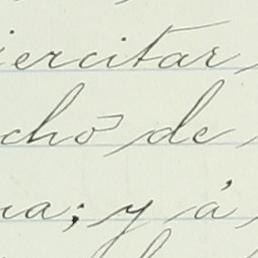 ejercitar
cho de
ia; y á